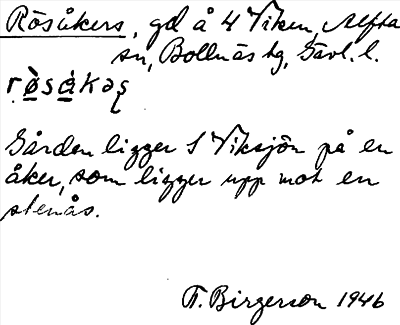 Rösåkers, gd å 4 Viken, Alfta
sn, Bollnäs tg, Gävl. l.
Gården ligger S Viksjön på en
åker, som ligger upp mot en
stenås.
F. Birgerson 1946